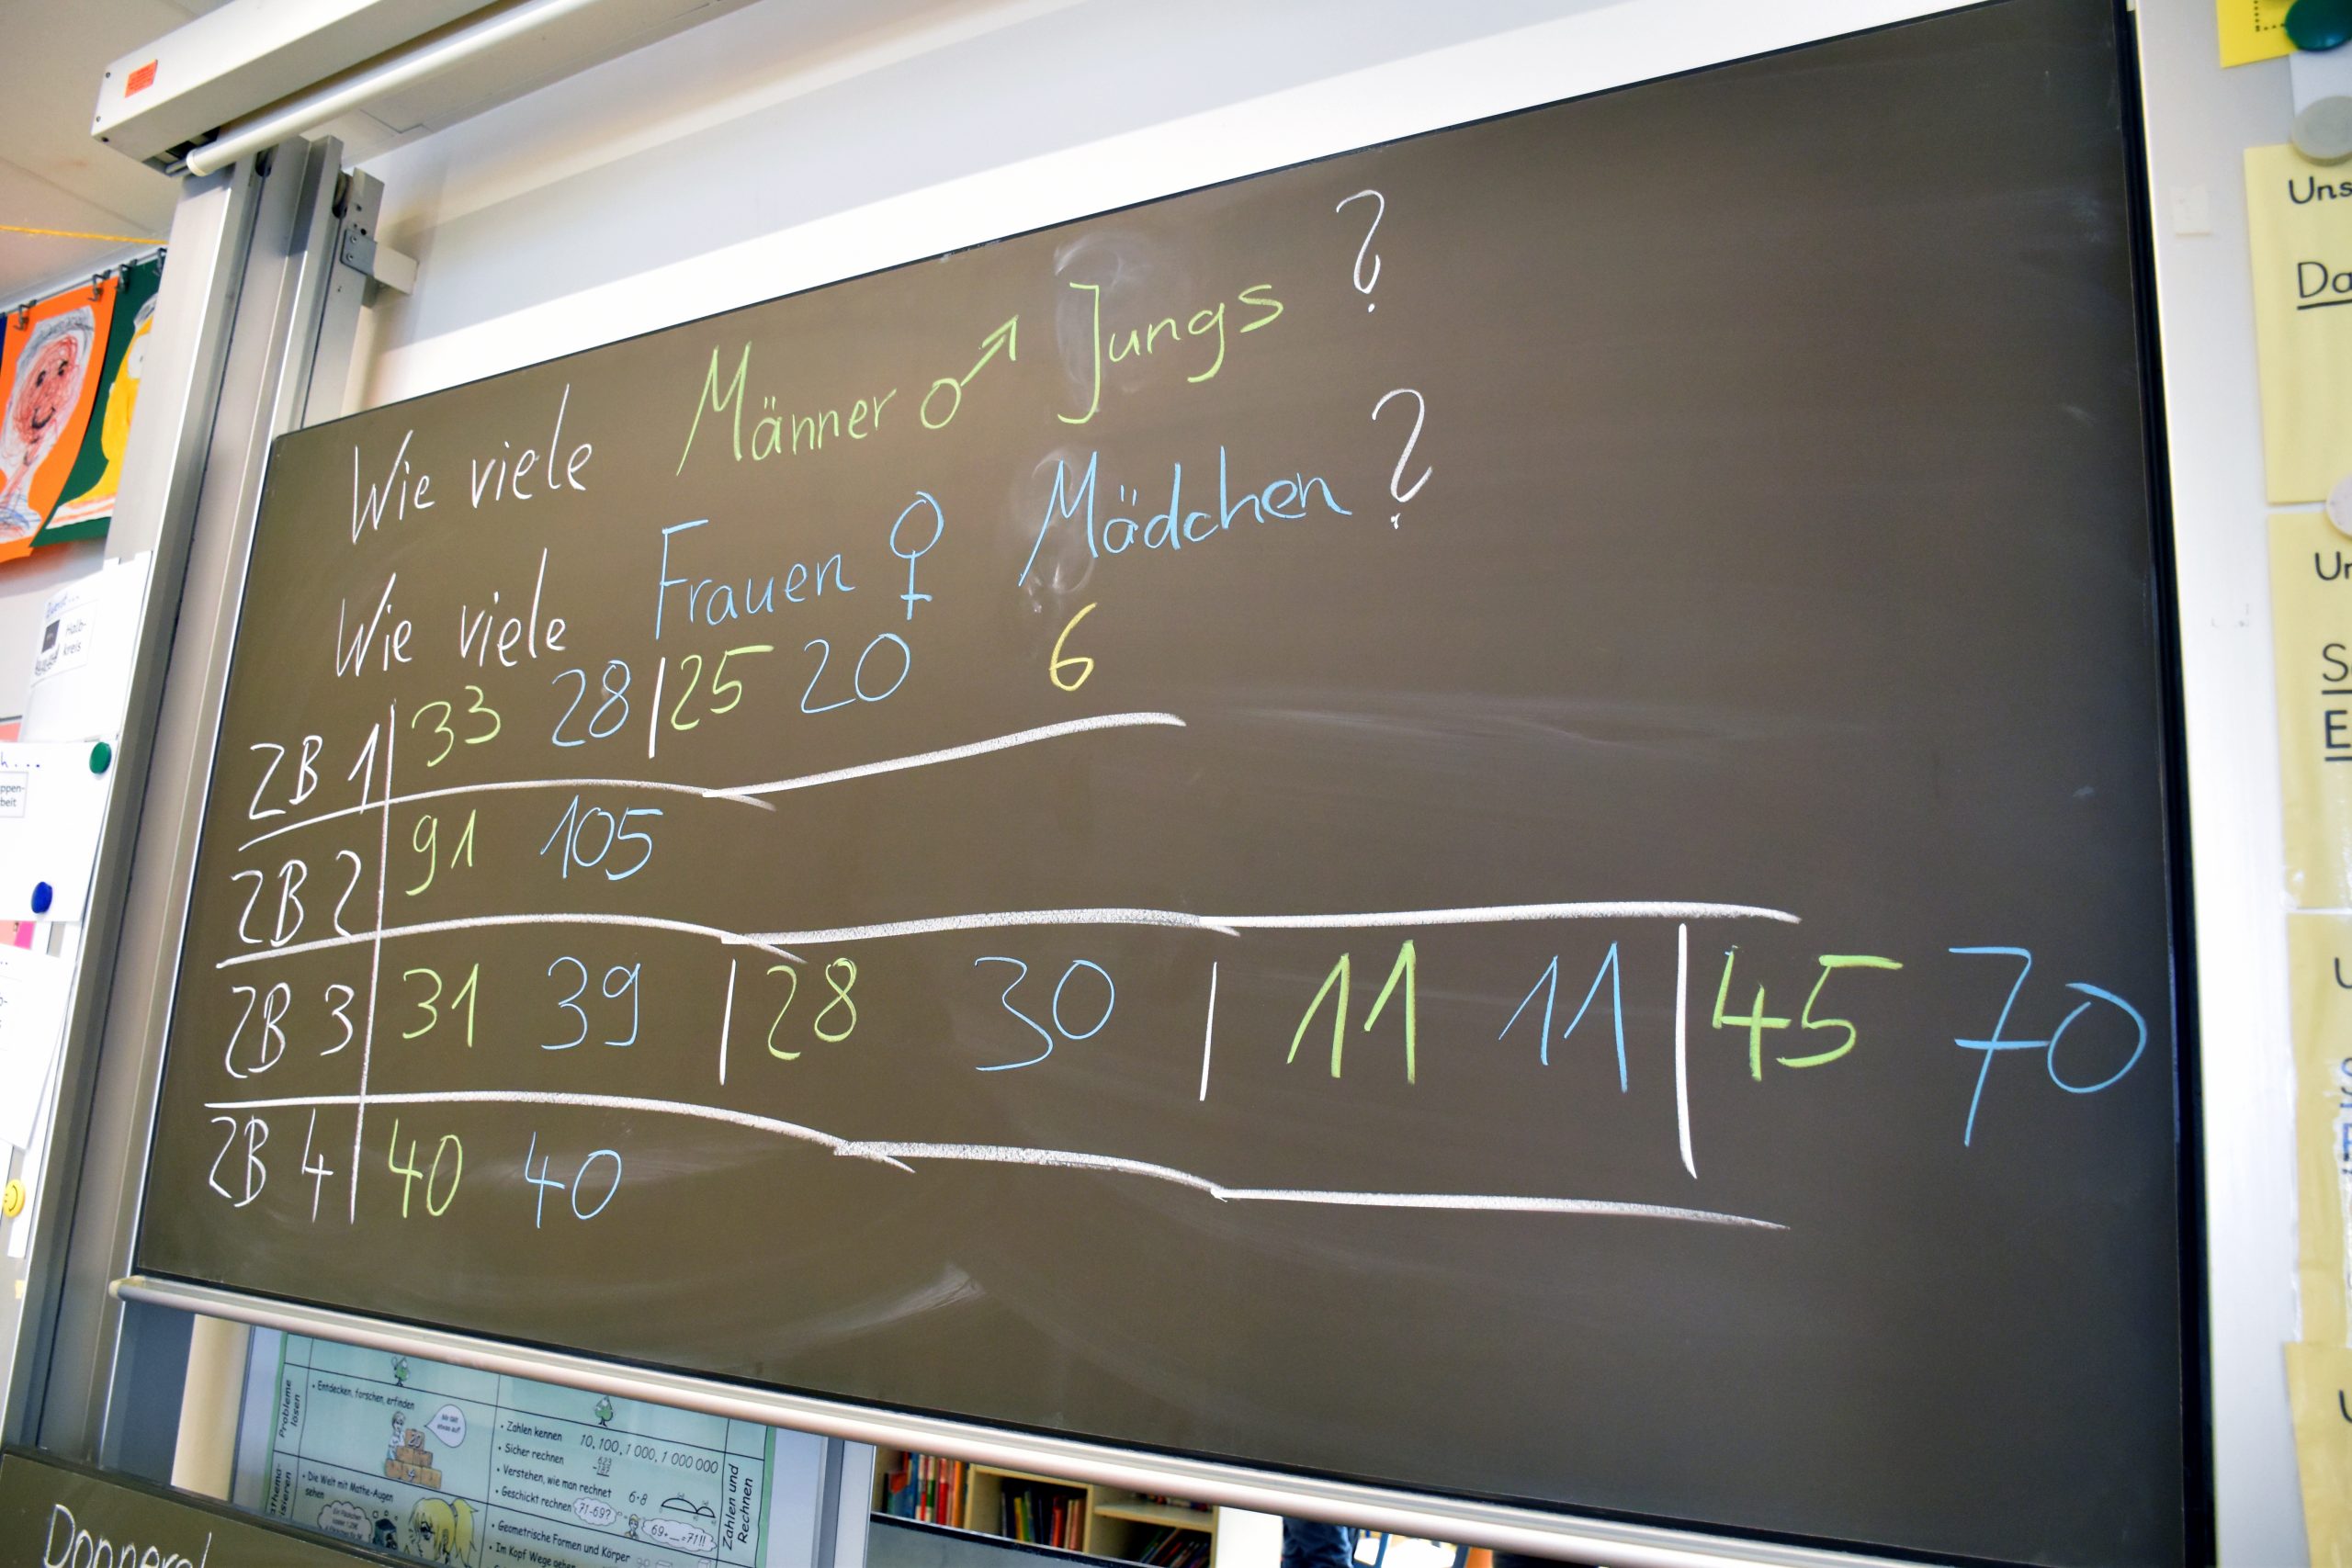 Wie viele Männer ♂ Jungs ?
Wie viele Frauen ♀ Mädchen ?
ZB 1 | 33 28 | 25 20 6
ZB 2 | 91 105
ZB 3 | 31 39 | 28 30 | 11 11 | 45 70
ZB 4 | 40 40
Halb-
kreis
ppen-
beit
Uns
Da
Probleme
lösen
• Entdecken, forschen, erfinden
• Die Welt mit Mathe-Augen
sehen
• Zahlen kennen 10, 100, 1 000, 1 000 000
• Sicher rechnen
• Verstehen, wie man rechnet 6·8
• Geschickt rechnen 71-69?
69+__=71!!
• Geometrische Formen und Körper
• Im Kopf Wege gehen
Zahlen und
Rechnen